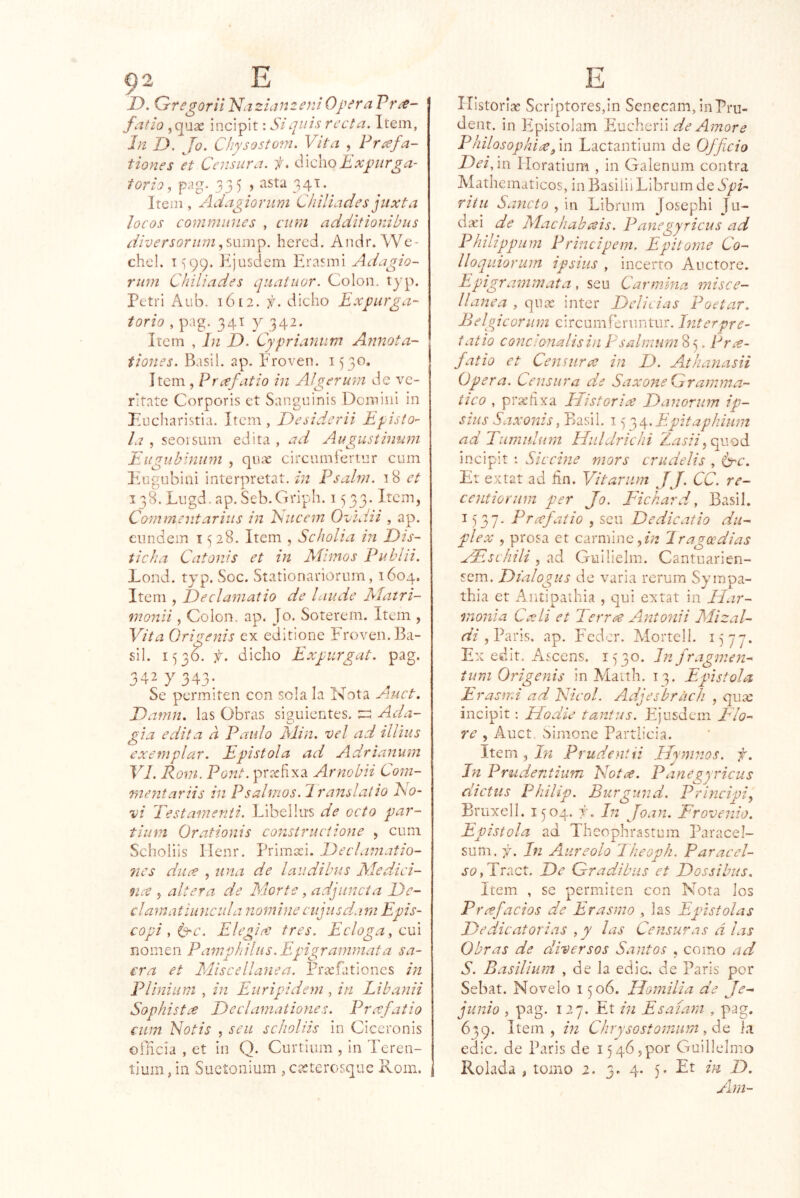 92 E
D. Gregorii Nazianzeni Opera Præ-
fatio, quæ incipit: Si quis recta. Item,
In D. Jo. Chysostom. Vita , Præfa-
tiones et Censura. ℣. dicho Expurga-
torio, pag. 335 , asta 341.
Item , Adagiorum Chiliades juxta
locos communes , cum additionibus
diversorum, sump. hered. Andr. We-
chel. 1599. Ejusdem Erasmi Adagio-
rum Chiliades quatuor. Colon. typ.
Petri Aub. 1612. ℣. dicho Expurga-
torio , pag. 341 y 342.
Item , In D. Cyprianum Annota-
tiones. Basil. ap. Froven. 1530.
Item , Præfatio in Algerum de ve-
ritate Corporis et Sanguinis Domini in
Eucharistia. Item , Desiderii Episto-
la , seorsum edita , ad Augustinum
Eugubinum , quæ circumfertur cum
Eugubini interpretat. in Psalm. 18 et
138. Lugd. ap. Seb. Griph. 1533. Item,
Commentarius in Nucem Ovidii , ap.
eundem 1528. Item , Scholia in Dis-
ticha Catonis et in Mimos Publii.
Lond. typ. Soc. Stationariorum, 1604.
Item , Declamatio de laude Matri-
monii , Colon. ap. Jo. Soterem. Item ,
Vita Origenis ex editione Froven. Ba-
sil. 1536. ℣. dicho Expurgat. pag.
342 y 343.
Se permiten con sola la Nota Auct.
Damn. las Obras siguientes. = Ada-
gia edita à Paulo Min. vel ad illius
exemplar. Epistola ad Adrianum
VI. Rom. Pont. præfixa Arnobii Com-
mentariis in Psalmos. Translatio No-
vi Testamenti. Libellus de octo par-
tium Orationis constructione , cum
Scholiis Henr. Primæi. Declamatio-
nes duæ , una de laudibus Medici-
næ , altera de Morte , adjuncta De-
clamatiuncula nomine cujusdam Epis-
copi , &c. Elegiæ tres. Ecloga, cui
nomen Pamphilus. Epigrammata sa-
cra et Miscellanea. Præfationes in
Plinium , in Euripidem , in Libanii
Sophistæ Declamationes. Præfatio
cum Notis , seu scholiis in Ciceronis
officia , et in Q. Curtium , in Teren-
tium, in Suetonium , cæterosque Rom.
E
Historiæ Scriptores, in Senecam, in Pru-
dent. in Epistolam Eucherii de Amore
Philosophiæ, in Lactantium de Officio
Dei, in Horatium , in Galenum contra
Mathematicos, in Basilii Librum de Spi-
ritu Sancto , in Librum Josephi Ju-
dæi de Machabæis. Panegyricus ad
Philippum Principem. Epitome Co-
lloquiorum ipsius , incerto Auctore.
Epigrammata , seu Carmina misce-
llanea , quæ inter Delicias Poetar.
Belgicorum circumferuntur. Interpre-
tatio concionalis in Psalmum 85. Præ-
fatio et Censuræ in D. Athanasii
Opera. Censura de Saxone Gramma-
tico , præfixa Historiæ Danorum ip-
sius Saxonis, Basil. 1534. Epitaphium
ad Tumulum Huldrichi Zasii, quod
incipit : Siccine mors crudelis , &c.
Et extat ad fin. Vitarum JJ. CC. re-
centiorum per Jo. Fichard, Basil.
1537. Præfatio , seu Dedicatio du-
plex , prosa et carmine, in Tragœdias
Æschili , ad Guilielm. Cantuarien-
sem. Dialogus de varia rerum Sympa-
thia et Antipathia , qui extat in Har-
monia Cæli et Terræ Antonii Mizal-
di , Paris. ap. Feder. Mortell. 1577.
Ex edit. Ascens. 1530. In fragmen-
tum Origenis in Matth. 13. Epistola
Erasmi ad Nicol. Adjesbràch , quæ
incipit : Hodie tantus. Ejusdem Flo-
re , Auct. Simone Partlicia.
Item , In Prudentii Hymnos. ℣.
In Prudentium Notæ. Panegyricus
dictus Philip. Burgund. Principi,
Bruxell. 1504. ℣. In Joan. Frovenio.
Epistola ad Theophrastum Paracel-
sum. ℣. In Aureolo Theoph. Paracel-
so, Tract. De Gradibus et Dossibus.
Item , se permiten con Nota los
Præfacios de Erasmo , las Epistolas
Dedicatorias , y las Censuras á las
Obras de diversos Santos , como ad
S. Basilium , de la edic. de Paris por
Sebat. Novelo 1506. Homilia de Je-
junio , pag. 127. Et in Esaiam , pag.
639. Item , in Chrysostomum, de la
edic. de Paris de 1546, por Guillelmo
Rolada , tomo 2. 3. 4. 5. Et in D.
Am-